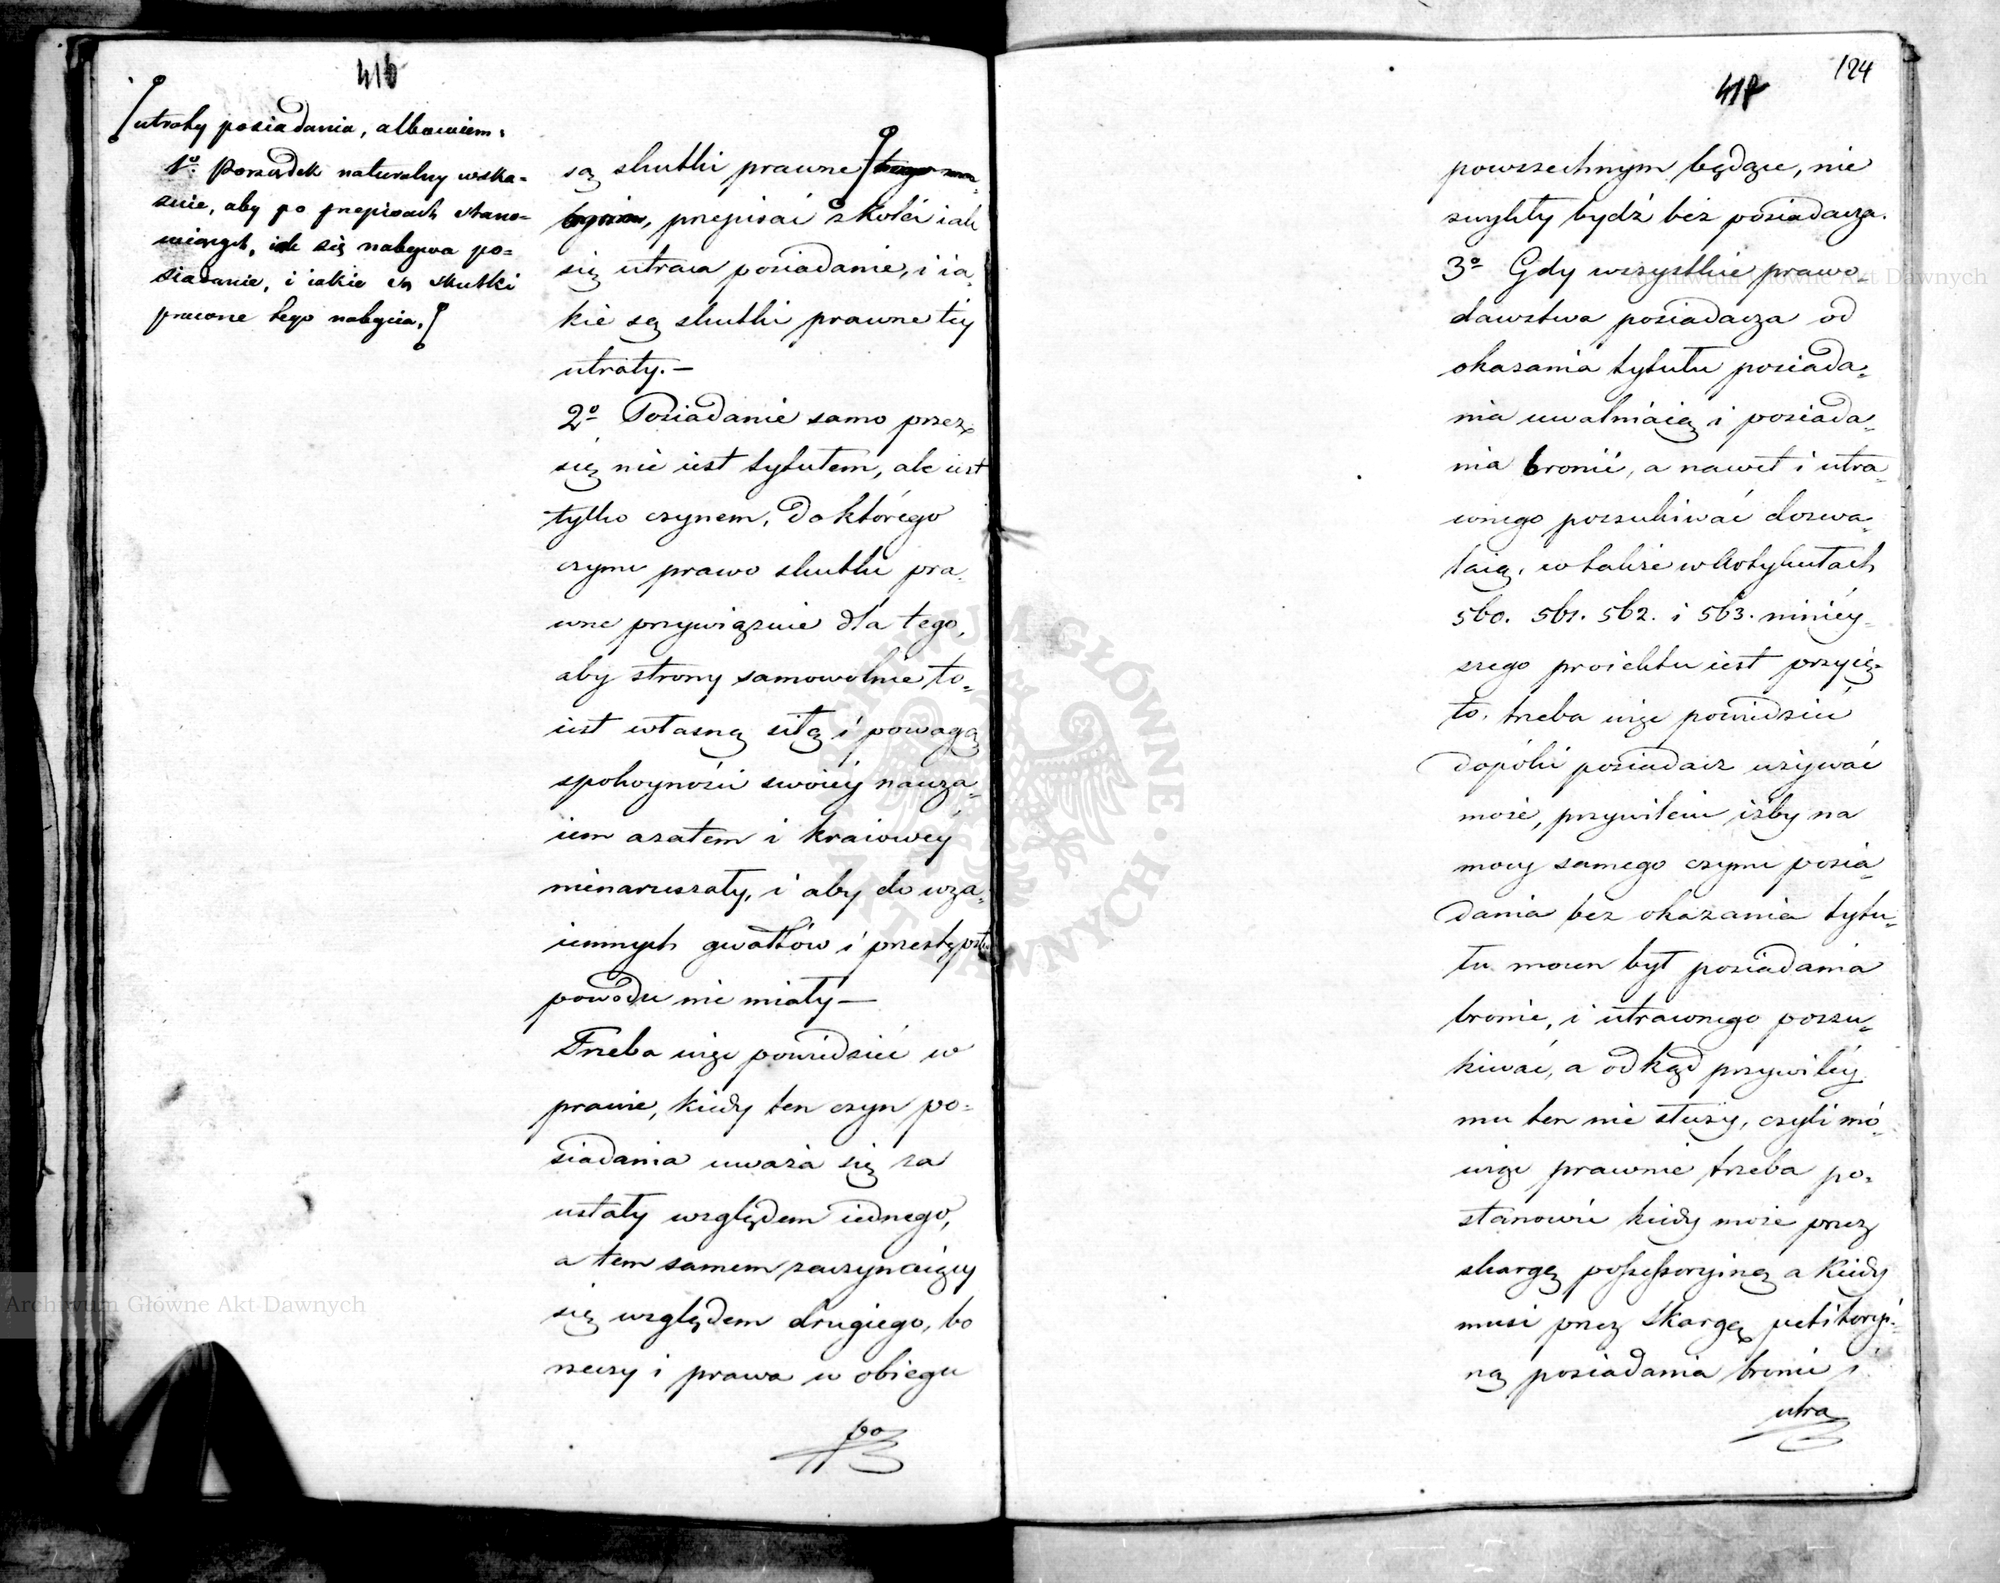 416
utraty posiadania, albowiem:
1o. Porządek naturalny wska-
zuie, aby po przepisach stano-
wiących, iak się nabywa po-
siadanie, i iakie są skutki
prawne tego nabycia,
są skutki prawne
przepisać z kolei iak
się utraca posiadanie, i ia-
kie są skutki prawne tey
utraty.—
2o Posiadanie samo przez
się nie iest tytułem, ale iest
tylko czynem, do którego
czynu prawo skutki pra-
wne przywiązuie dla tego,
aby strony samowolnie to-
iest własną siłą i powagą
spokoyności swoiéy nawza-
iem a zatem i kraiowéy
nienaruszały, i aby do wza-
iemnych gwałtów i przestępstw
powodu nie miały—
Trzeba więc powiedzieć w
prawie, kiedy ten czyn po-
siadania uważa się za
ustały względem iednego,
a tem samem zaczynaiący
się względem drugiego, bo
rzeczy i prawa w obiegu
po
417
124
powszechnym będące, nie
zwykły bydź bez posiadacza.
3o Gdy wszystkie prawo-
dawstwa posiadacza od
okazania tytułu posiada-
nia uwalniaią i posiada-
nia bronić, a nawet i utra-
conego poszukiwać dozwa-
laią, co także w Artykułach
560. 561. 562. i 563. ninięy-
szego proiektu iest przyię-
to. trzeba więc powiedzieć
dopóki posiadacz używać
może, przywileiu iżby na
mocy samego czynu posia-
dania bez okazania tytu-
łu mocen był posiadania
bronić, i utraconego poszu-
kiwać, a odkąd przywiléy
mu ten nie służy, czyli mó-
wiąc prawnie trzeba po-
stanowić kiedy może przez
skargę possessoryiną a kiedy
musi przez skargę petitoryi-
ną posiadania bronić i
utra
Archiwum Główne Akt Dawnych
Archiwum Główne Akt Dawnych
ARCHIWUM GŁÓWNE · AKT DAWNYCH ·